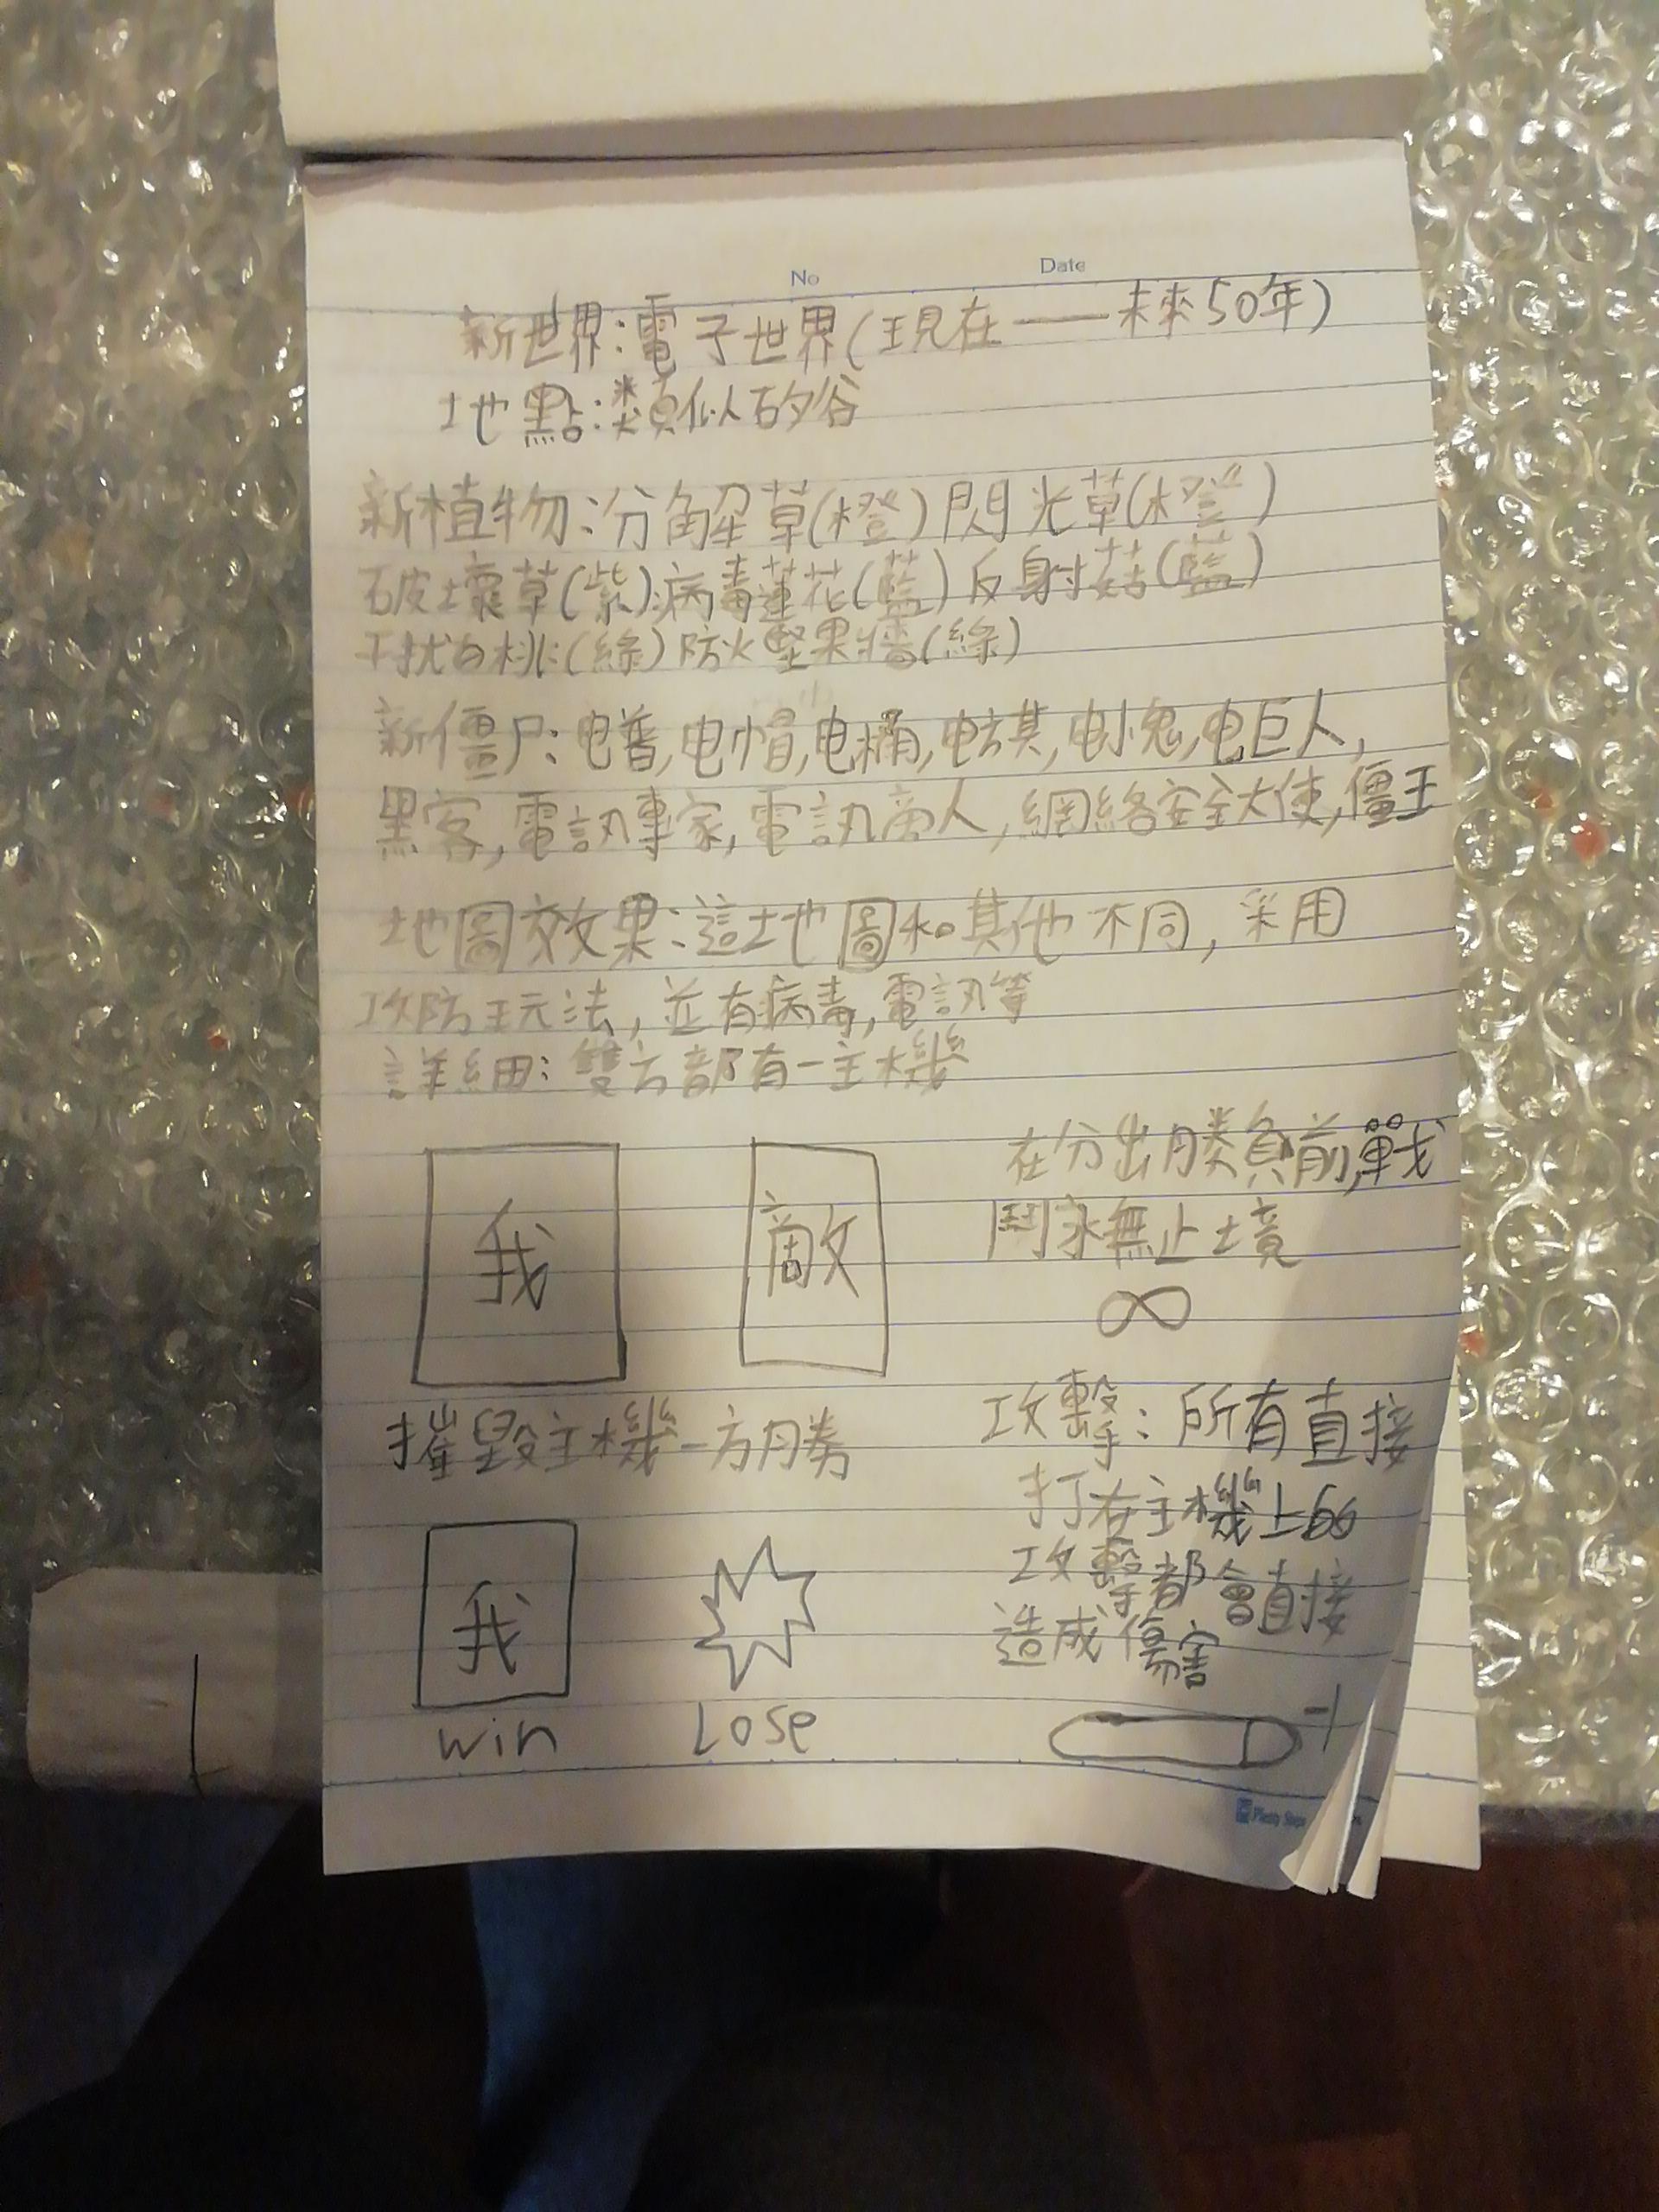 No Date
新世界:電子世界(現在——未來50年)
地點:類似矽谷
新植物:分解草(橙)閃光草(橙)
破壞草(紫)病毒蓮花(藍)反射菇(藍)
干擾白桃(綠)防火堅果牆(綠)
新僵尸:电普,电帽,电桶,电旗,电小鬼,电巨人,
黑客,電訊專家,電訊商人,網絡安全大使,僵王
地圖效果:這地圖和其他不同,采用
攻防玩法,並有病毒,電訊等
詳細:雙方都有一主機
我
敵
在分出勝負前,戰
鬥永無止境
∞
摧毀主機一方勝
攻擊:所有直接
打在主機上的
攻擊都會直接
造成傷害
我
win
Lose
-1